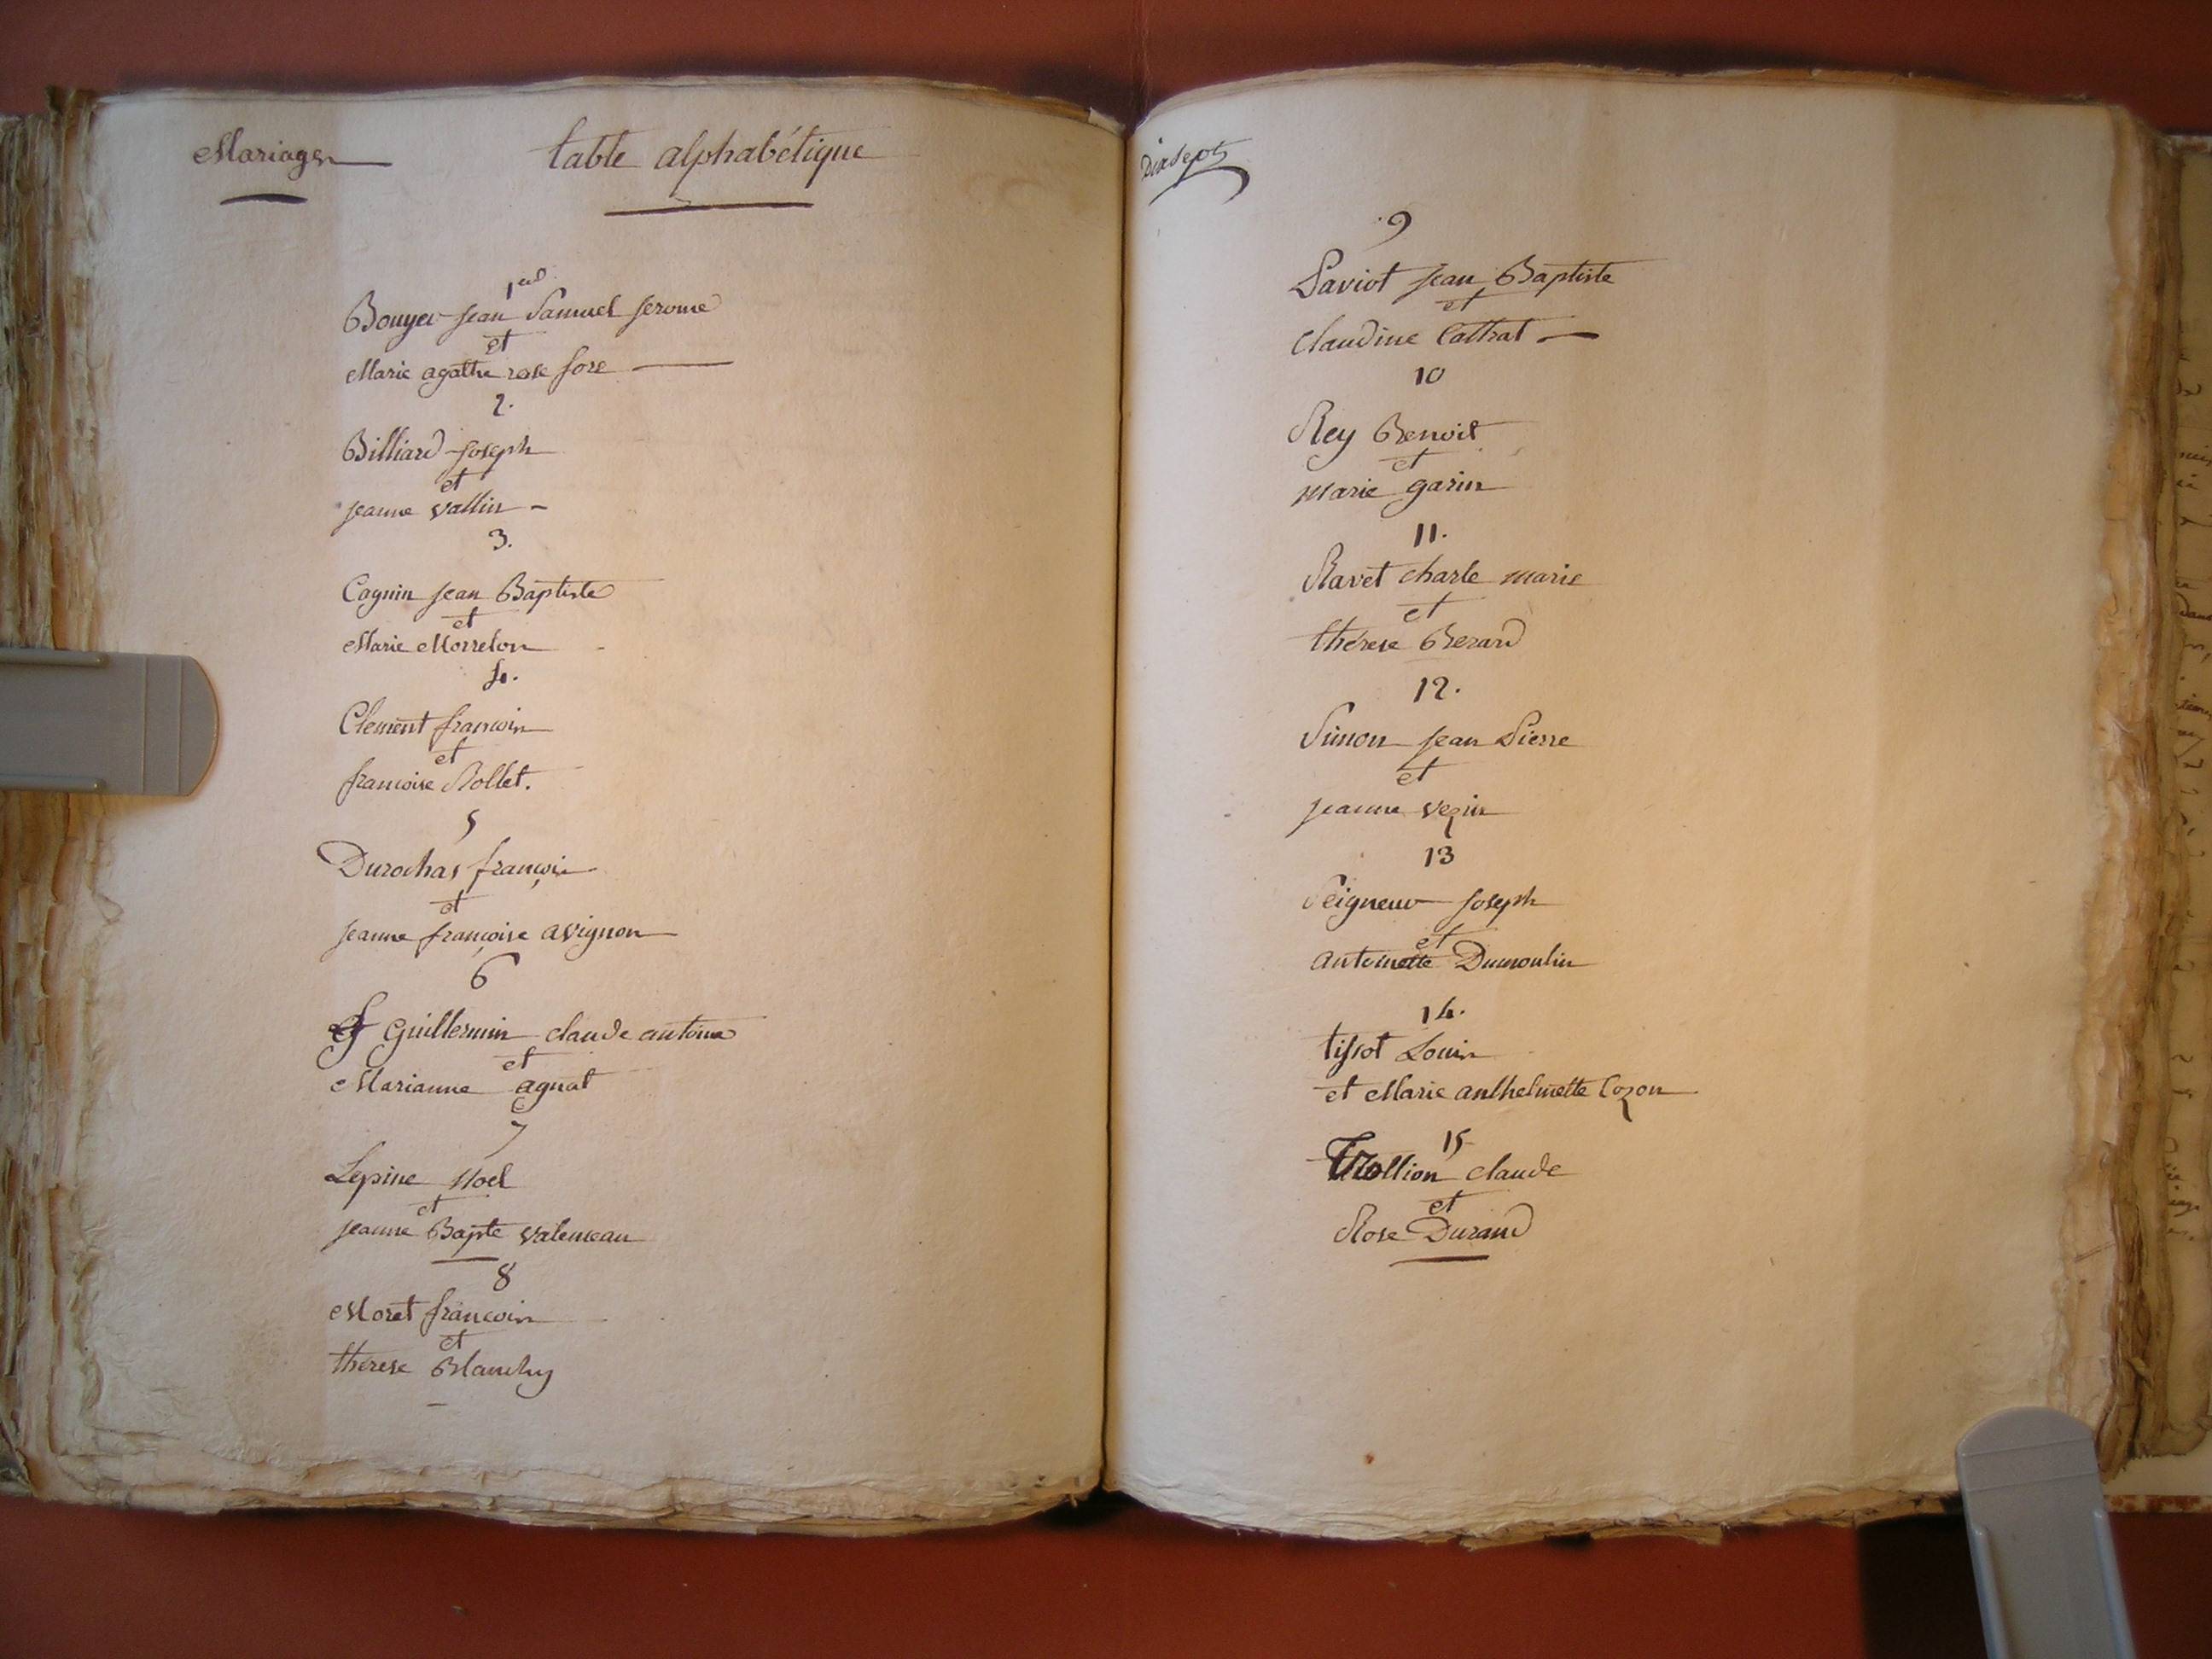 Mariages
table alphabétique
1er
Bouyer jean Samuel jerome
et
Marie agathe rose fore
2.
Billiard joseph
et
jeanne vallin
3.
Cognin jean Baptiste
et
Marie Morrelon
4.
Clement francois
et
francoise Rollet.
5
Durochas françois
et
jeanne françoise avignon
6
Guillermin claude antoine
et
Marianne agnat
7
Lepine Noel
et
jeanne Bapte
8
Moret francois
et
thérese Blanchy
Dixsept
9
Paviot jean Baptiste
et
Claudine Cattrat
10
Rey Benoit
et
marie garin
11.
Ravet charle marie
et
thérese Berard
12.
Simon jean Pierre
et
jeanne vezin
13
Seigneur joseph
et
antoinette Dumoulin
14.
tissot Louis
et Marie anthelmette Cozon
15
Trollion claude
et
Rose Durand